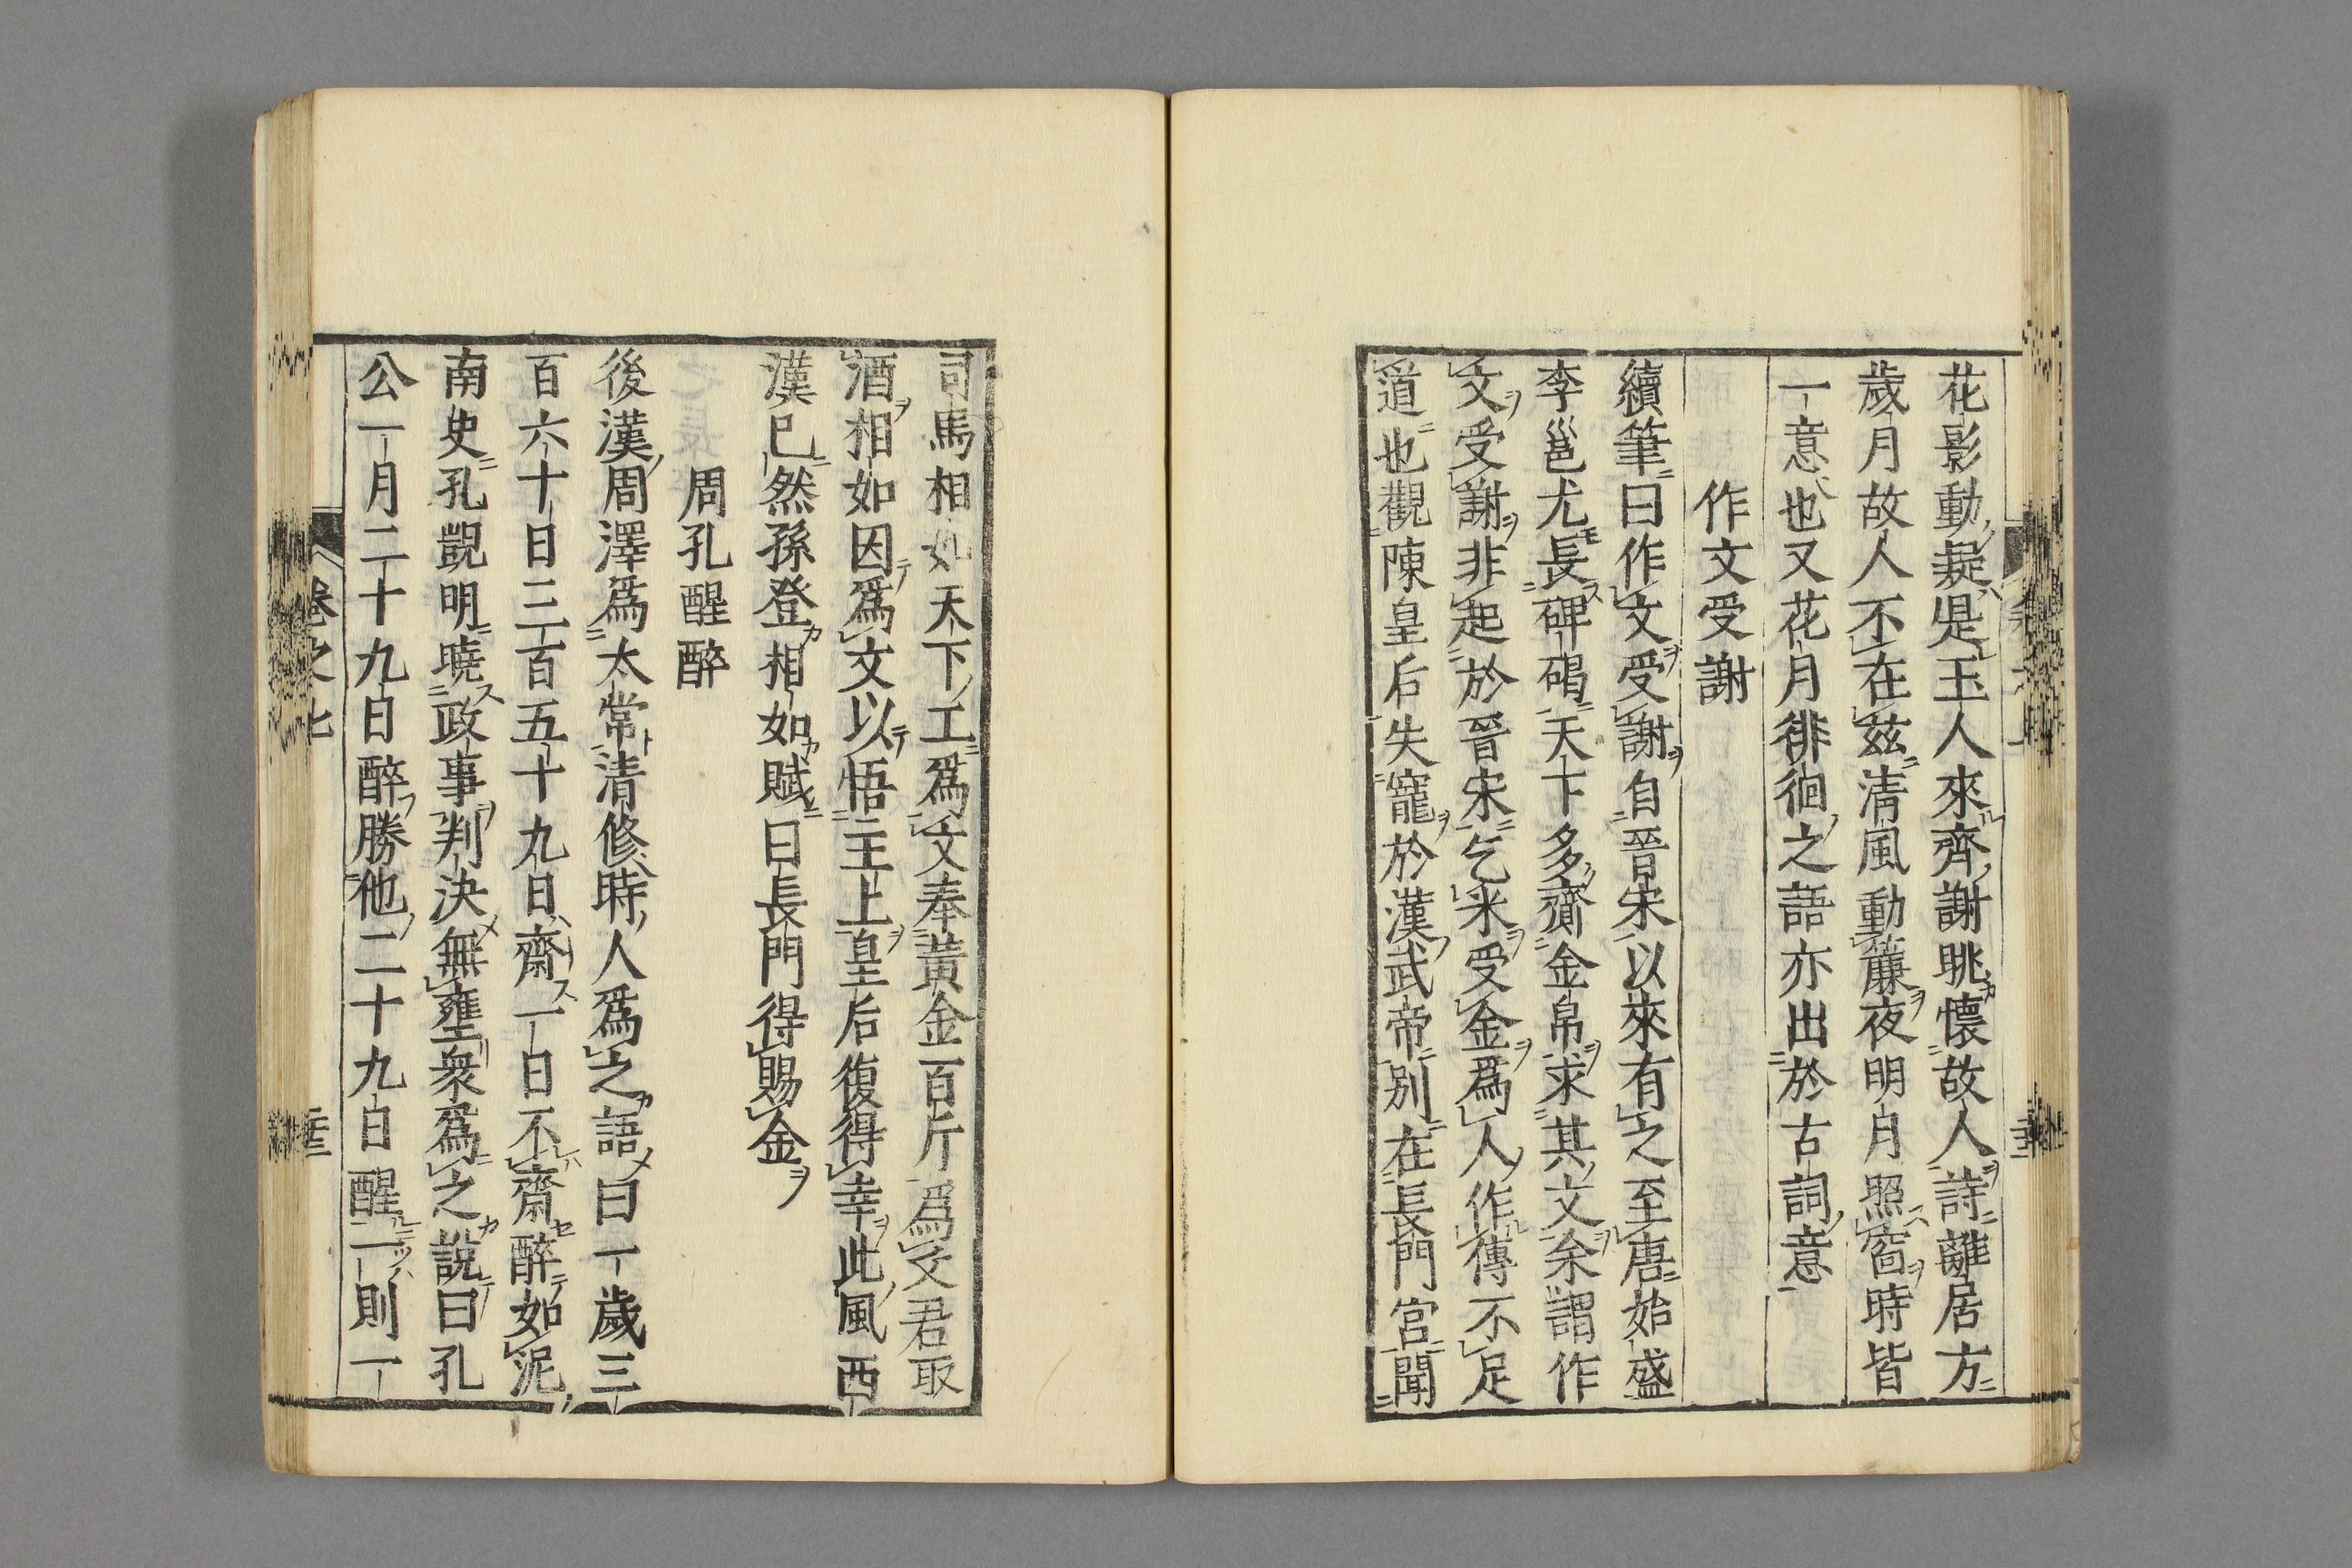 花影動疑是玉人來齊謝眺懷故人詩離居方
歲月故人不在茲清風動簾夜明月照窗時皆
一意也又花月徘徊之語亦出於古詞意
作文受謝
續筆曰作文受謝自晉宋以來有之至唐始盛
李邕尤長碑碣天下多齎金帛求其文余謂作
文受謝非起於晉宋乞米受金爲人作傳不足
道也觀陳皇后失寵於漢武帝別在長門宮聞
司馬相如天下工爲文奉黃金百斤爲文君取
酒相如因爲文以悟主上皇后復得幸此風西
漢已然孫登相如賦曰長門得賜金
周孔醒醉
後漢周澤爲太常清修時人爲之語曰一歲三
百六十日三百五十九日齋一日不齋醉如泥
南史孔覬明曉政事判決無壅衆爲之說曰孔
公一月二十九日醉勝他二十九日醒二則一
卷之七